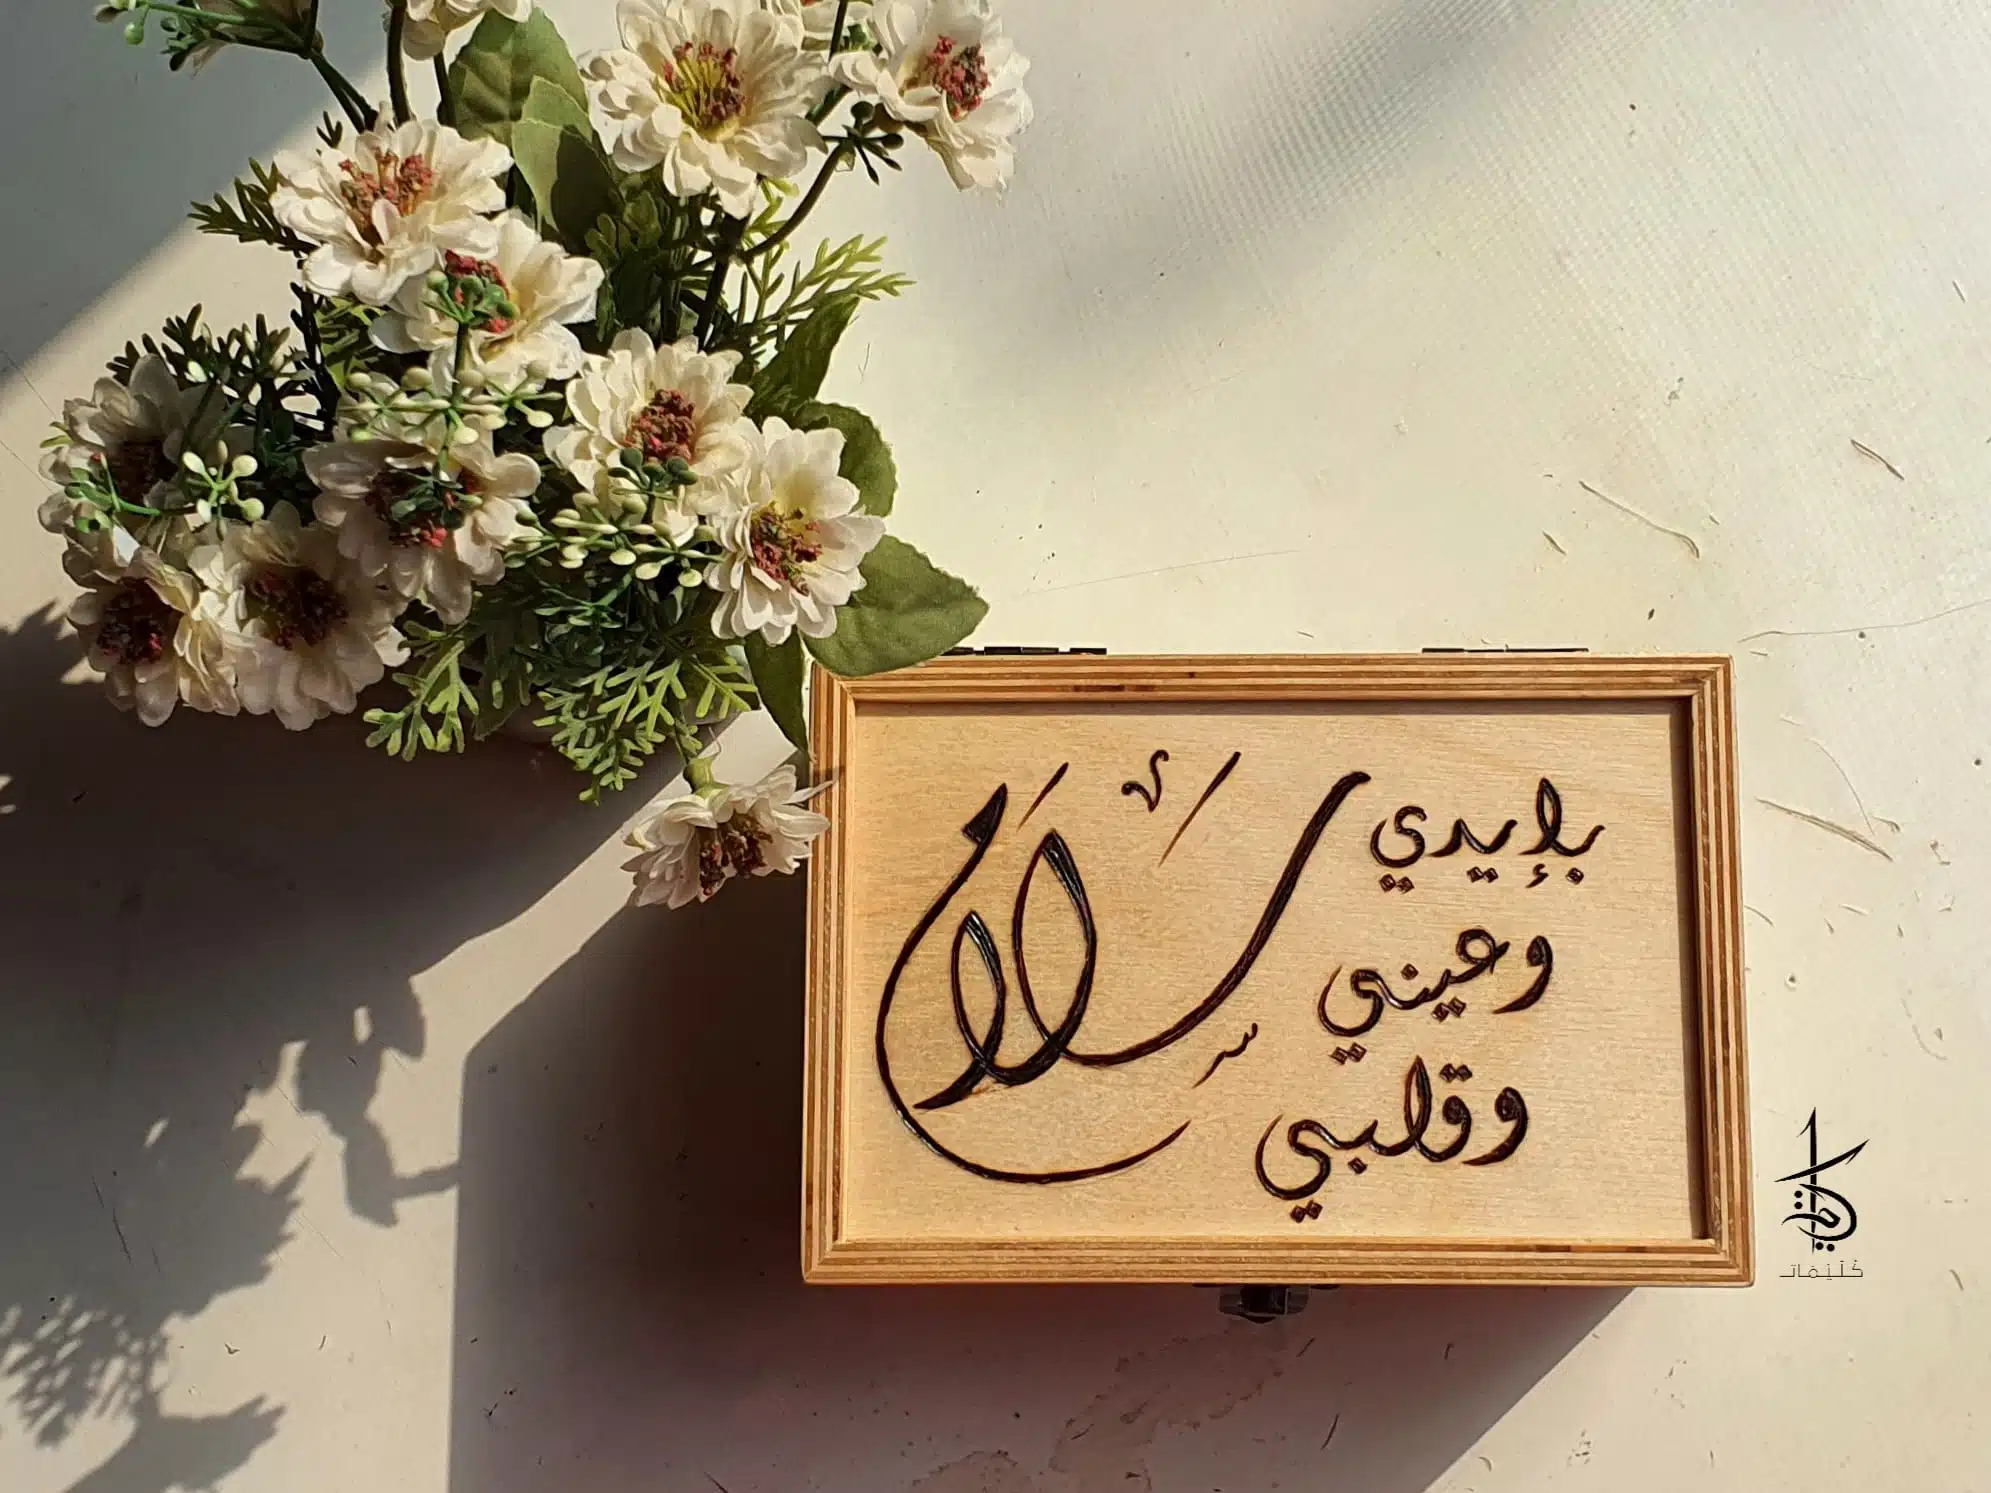 بإيدي
وعيني
وقلبي
سلام